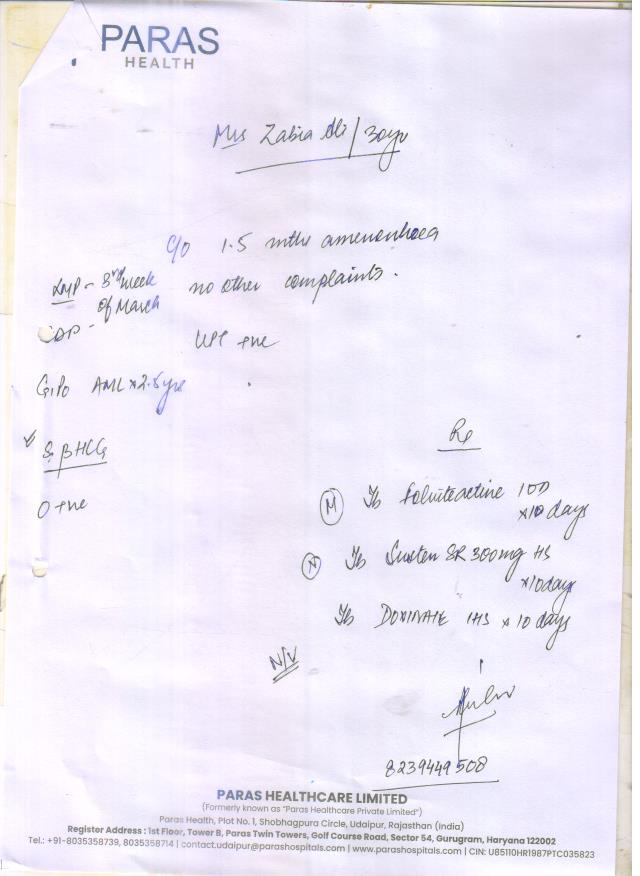 PARAS
HEALTH
Mrs Zabia Ali / 30yr
c/o 1.5 mths amenorrhoea
LMP - 3rd week of March
no other complaints.
UPT +ve
G1P0 AML x 2.5 yrs
S. βHCG
O +ve
Rx
(M) Tb Foluteactine 1OD
x10 days
(N) Tb Susten SR 300mg HS
x10 days
Tb DOXINATE 1HS x 10 days
N/V
8239449508
PARAS HEALTHCARE LIMITED
(Formerly known as "Paras Healthcare Private Limited")
Paras Health, Plot No. 1, Shobhagpura Circle, Udaipur, Rajasthan (India)
Register Address : 1st Floor, Tower B, Paras Twin Towers, Golf Course Road, Sector 54, Gurugram, Haryana 122002
Tel.: +91-8035358739, 8035358714 | contact.udaipur@parashospitals.com | www.parashospitals.com | CIN: U85110HR1987PTC035823